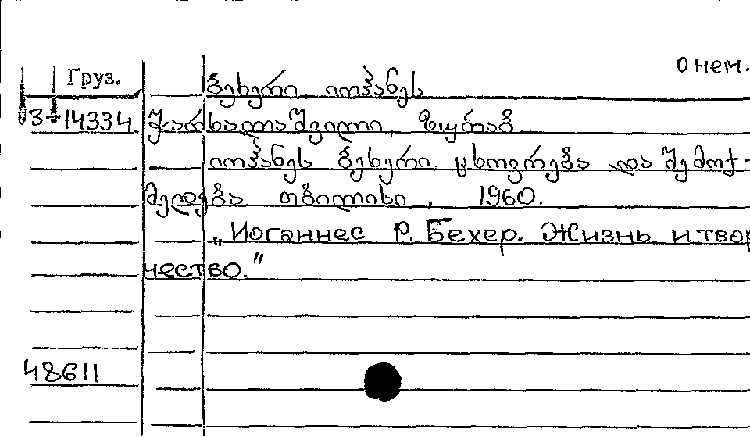 о нем.
Груз.
ბეხერი იოჰანეს
3-14334
კაკიაშვილი, ზურაბ
იოჰანეს ბეხერი. ცხოვრება და შემოქ-
მედება თბილისი, 1960.
„Иоганнес Р. Бехер. Жизнь и твор
чество."
48611